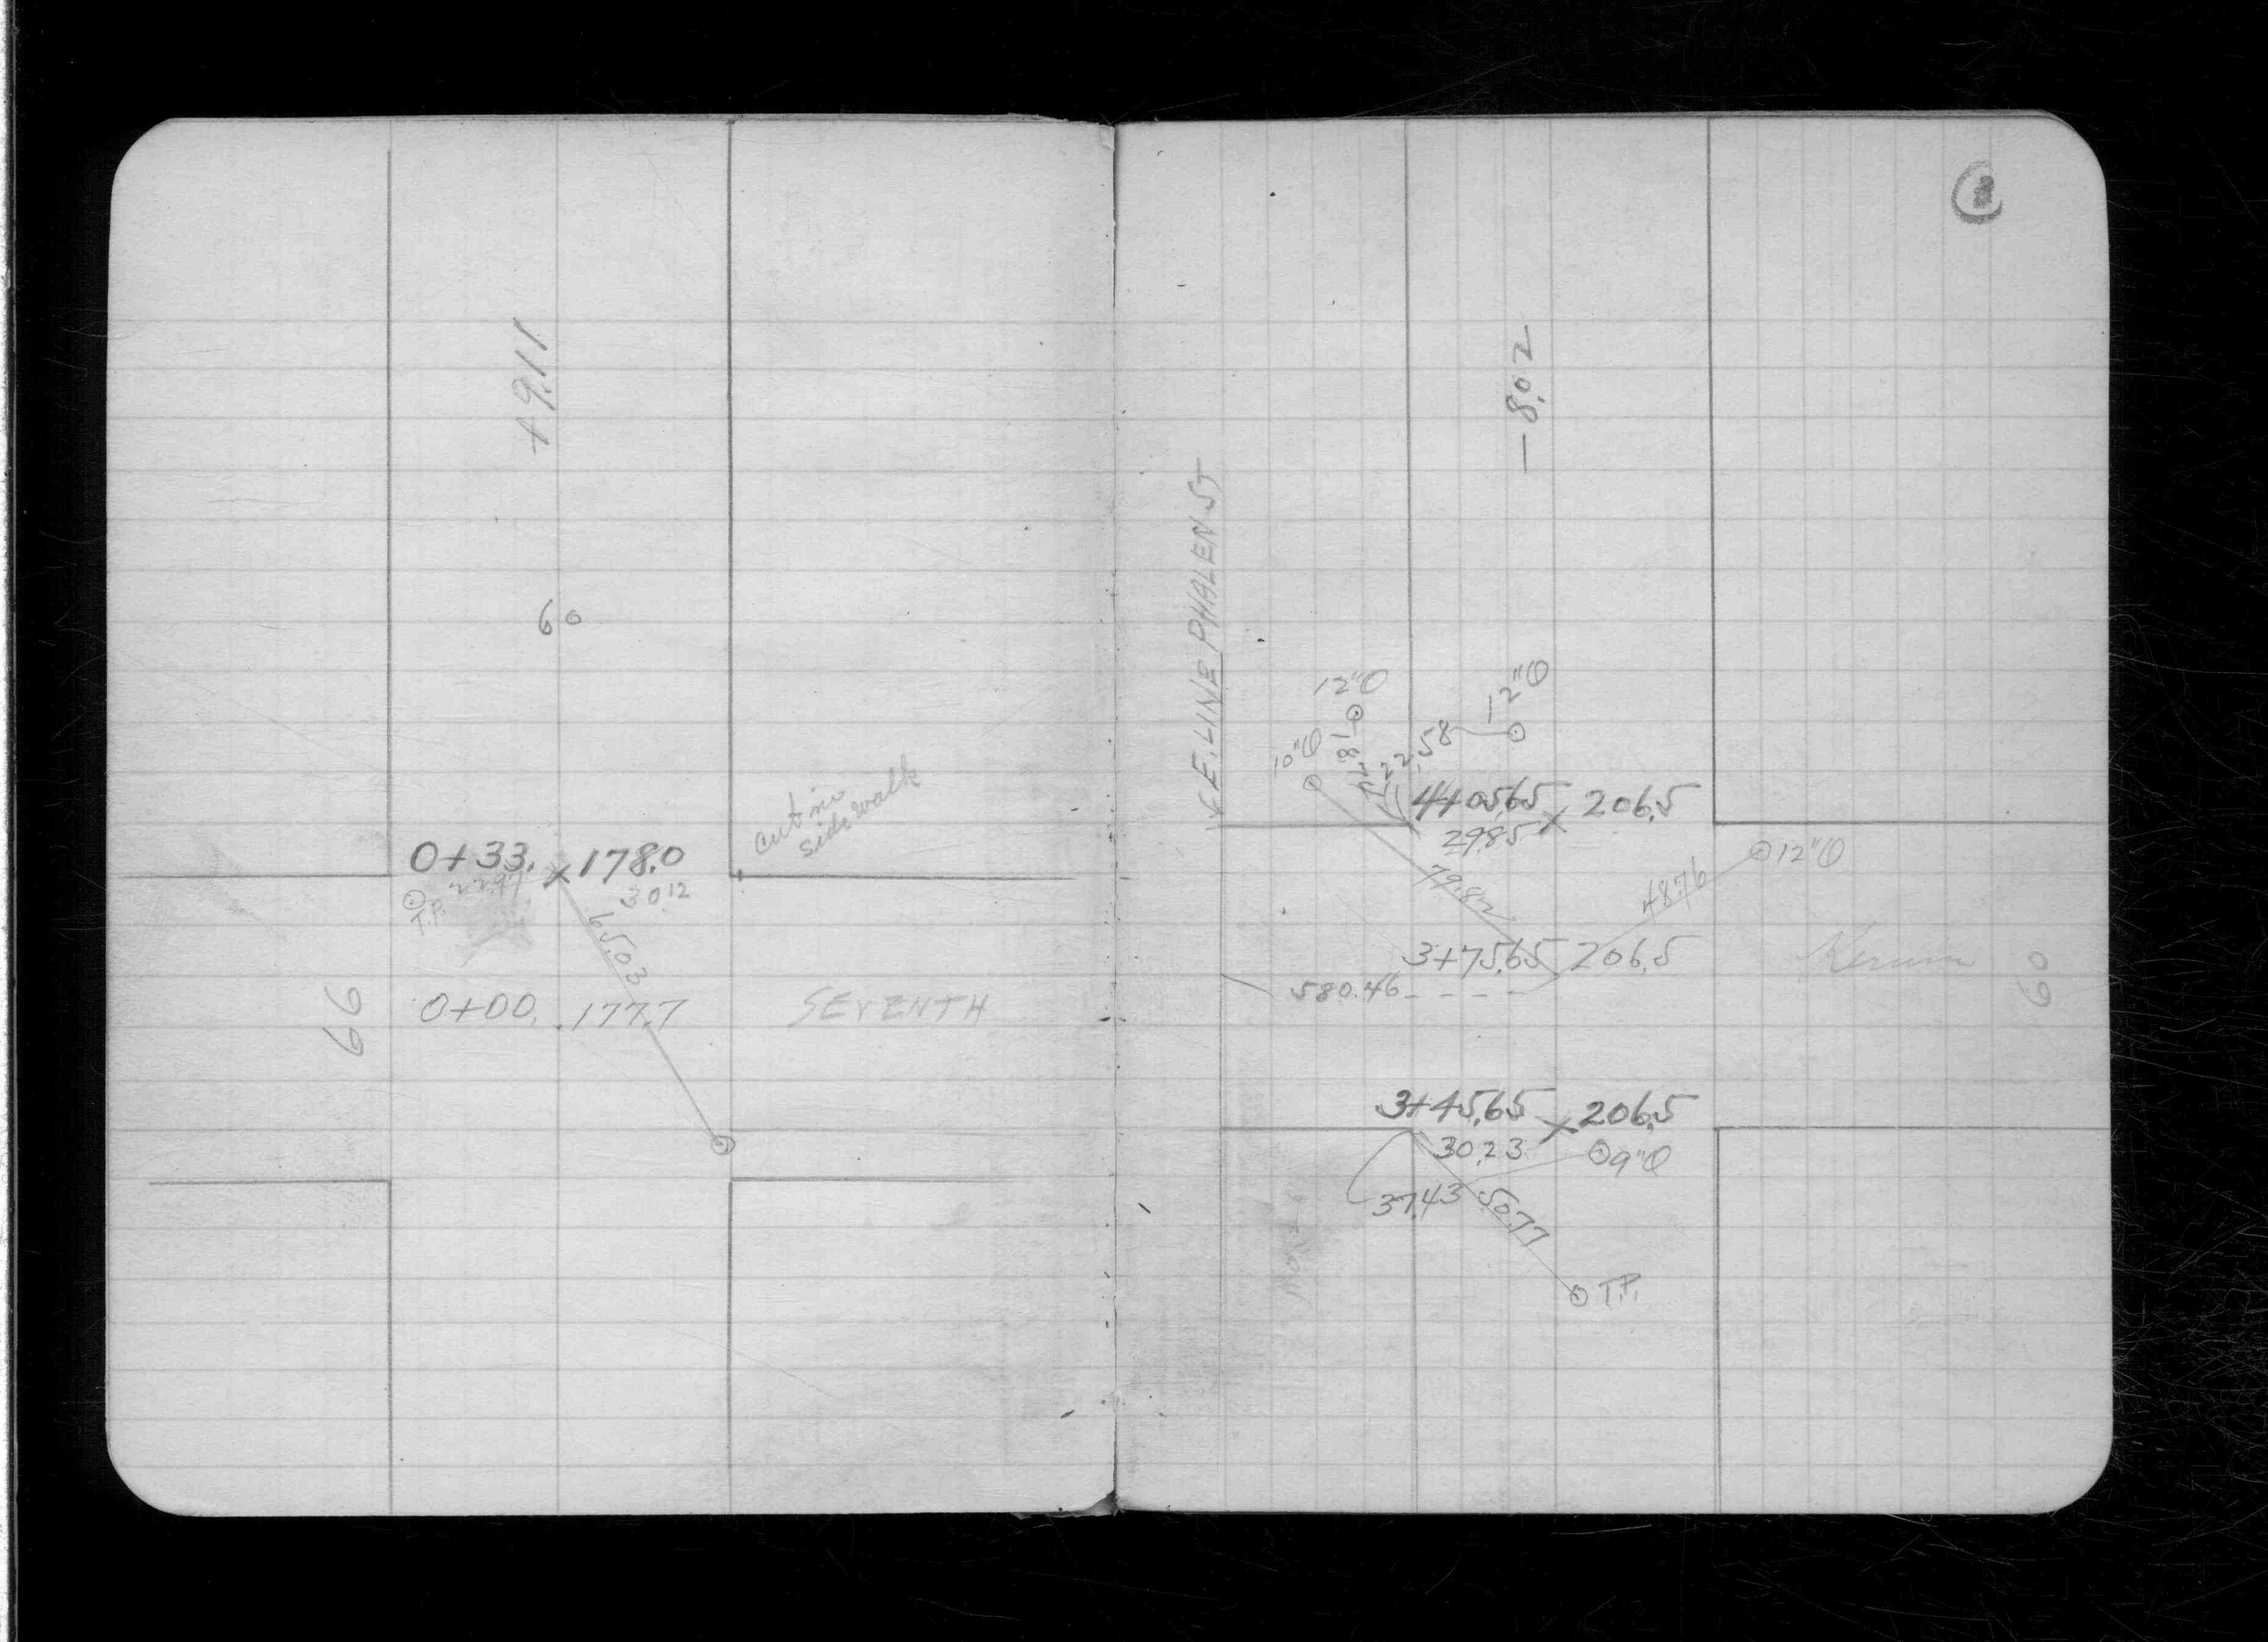 +9.11
60
cut in
sidewalk
0+33. x 178.0
22.97
30.12
T.P.
65.03
66
0+00. 177.7
SEVENTH
-8.02
E. LINE PHALEN ST
12"O
12"O
10"O
22.58
4+05.65 x 206.5
29.85
12"O
79.82
48.76
3+75.65 206.5
60
580.46
3+45.65 x 206.5
30.23
9"O
37.43
50.77
T.P.